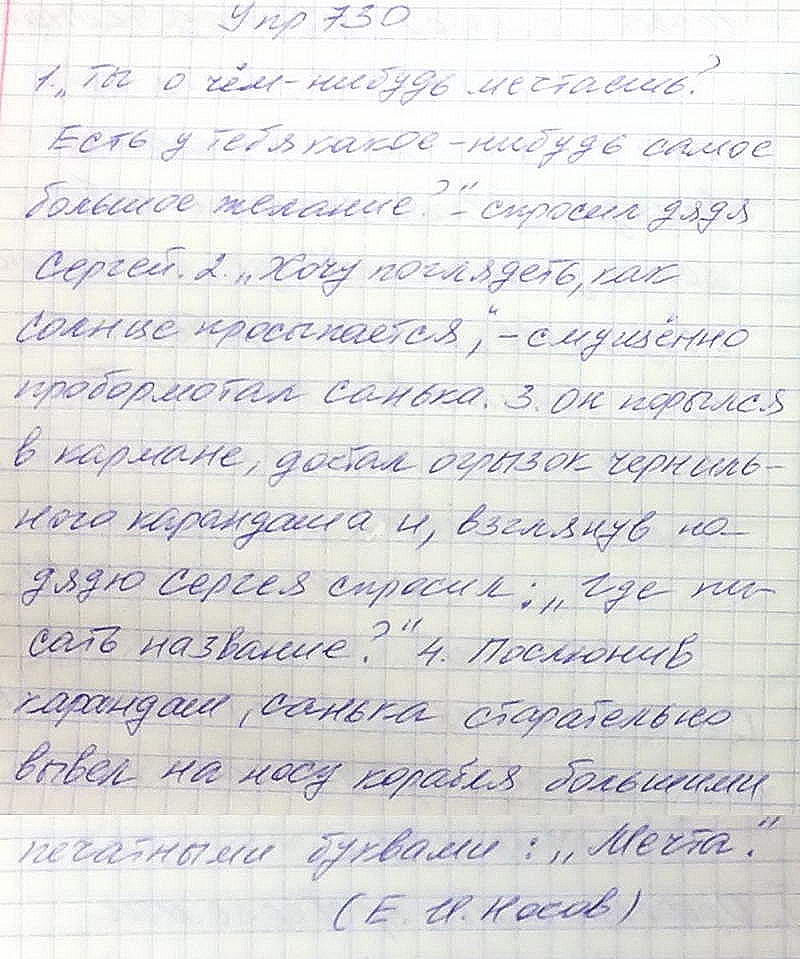 Упр 730
1. „Ты о чём-нибудь мечтаешь?
Есть у тебя какое-нибудь самое
большое желание?" - спросил дядя
Сергей. 2. „Хочу поглядеть, как
солнце просыпается," - смущённо
пробормотал Санька. 3. Он порылся
в кармане, достал огрызок черниль-
ного карандаша и, взглянув на-
дядю Сергея спросил: „Где пи-
сать название?" 4. Послюнив
карандаш, Санька старательно
вывел на носу корабля большими
печатными буквами: „Мечта."
(Е. И. Носов)